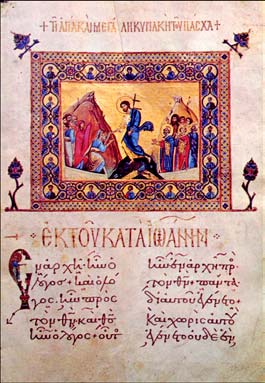 +ΤΗ ΑΓΙΑ ΚΑΙ ΜΕΓΑΛΗ ΚΥΡΙΑΚΗ ΤΟΥ ΠΑΣΧΑ+
ἘΚ ΤΟΥ ΚΑΤΑ ἸΩΑΝΝΗΝ
Ἐν ἀρχῆ ἦν ὁ
λόγος + καὶ ὁ λό
γος ἦν πρὸς
τὸν θν· καὶ θς
ἦν ὁ λόγος + οὗτ
ἦν ἐν ἀρχῆ πρ
τὸν θν + πάντα
δι αὐτοῦ ἐγένετο
καὶ χωρὶς αὐτοῦ
ἐγένετο οὐδὲ ἕν